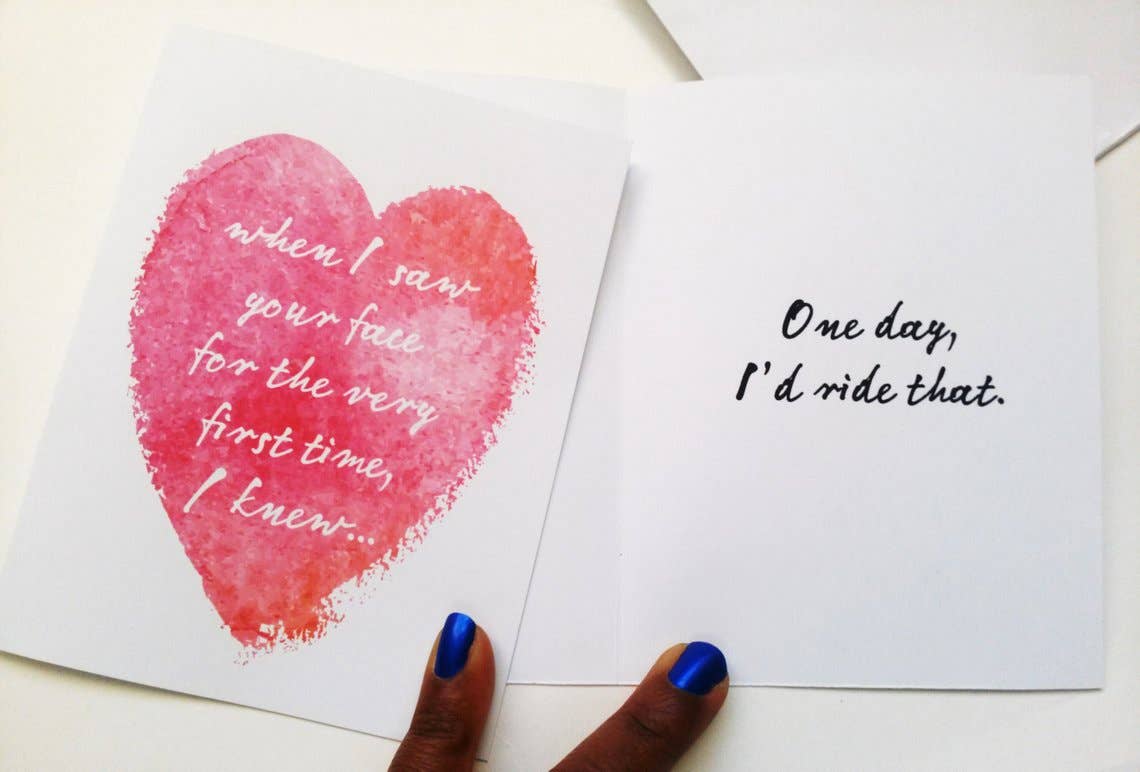 when I saw
your face
for the very
first time,
I knew...
One day,
I'd ride that.